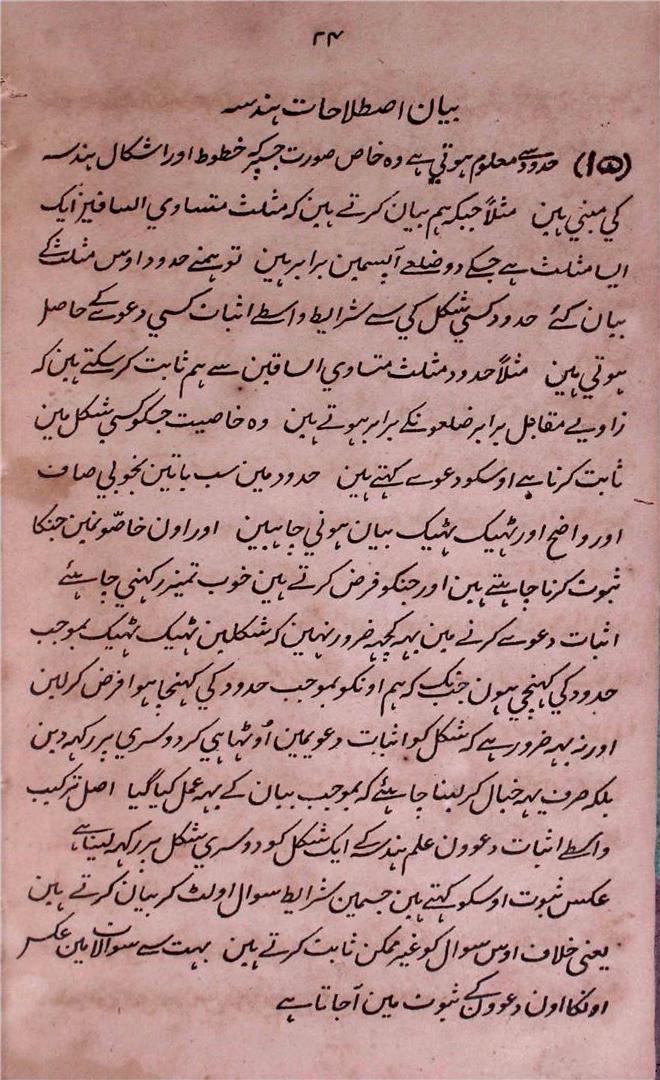 ۲۴
بیان اصطلاحات ہندسہ
(۱۵) حدود سے معلوم ہوتي ہے وہ خاص صورت جسپر کہ خطوط اور اشکال ہندسہ
کي مبني ہین مثلاً جبکہ ہم بیان کرتے ہین کہ مثلث متساوي الساقین ایک
ایسا مثلث ہے جسکے دو ضلعے آپسمین برابر ہین تو ہمنے حدود اوس مثلث کے
بیان کئے حدود کسي شکل کي سے شرایط واسطے اثبات کسي دعوے کے حاصل
ہوتي ہین مثلاً حدود مثلث متساوي الساقین سے ہم ثابت کرسکتے ہین کہ
زاویے مقابل برابر ضلعونکے برابر ہوتے ہین وہ خاصیت جسکو کسي شکل مین
ثابت کرنا ہے اوسکو دعوے کہتے ہین حدود مین سب باتین بخوبي صاف
اور واضح اور ٹہیک ٹہیک بیان ہوني چاہیین اور اون خاصّونمین جنکا
ثبوت کرنا چاہتے ہین اور جنکو فرض کرتے ہین خوب تمیز رکہني چاہئے
اثبات دعوے کرنے مین یہہ کچہہ ضرور نہین کہ شکلین ٹہیک ٹہیک بموجب
حدود کي کہنچي ہون جبتک کہ ہم اونکو بموجب حدود کي کہنچا ہوا فرض کرلین
اور نہ یہہ ضرور ہے کہ شکل کو اثبات دعویمین اُوٹہا ہي کر دوسري پر رکہہ دین
بلکہ صرف یہہ خیال کر لینا چاہئے کہ بموجب بیان کے یہہ عمل کیا گیا اصل ترکیب
واسطے اثبات دعوون علم ہندسہ کے ایک شکل کو دوسري شکل پر رکہہ لینا ہے
عکس ثبوت اوسکو کہتے ہین جسمین شرایط سوال اولٹ کر بیان کرتے ہین
یعني خلاف اوس سوال کو غیر ممکن ثابت کرتے ہین بہت سے سوالات مین عکس
اونکا اون دعوون کے ثبوت مین آجاتا ہے